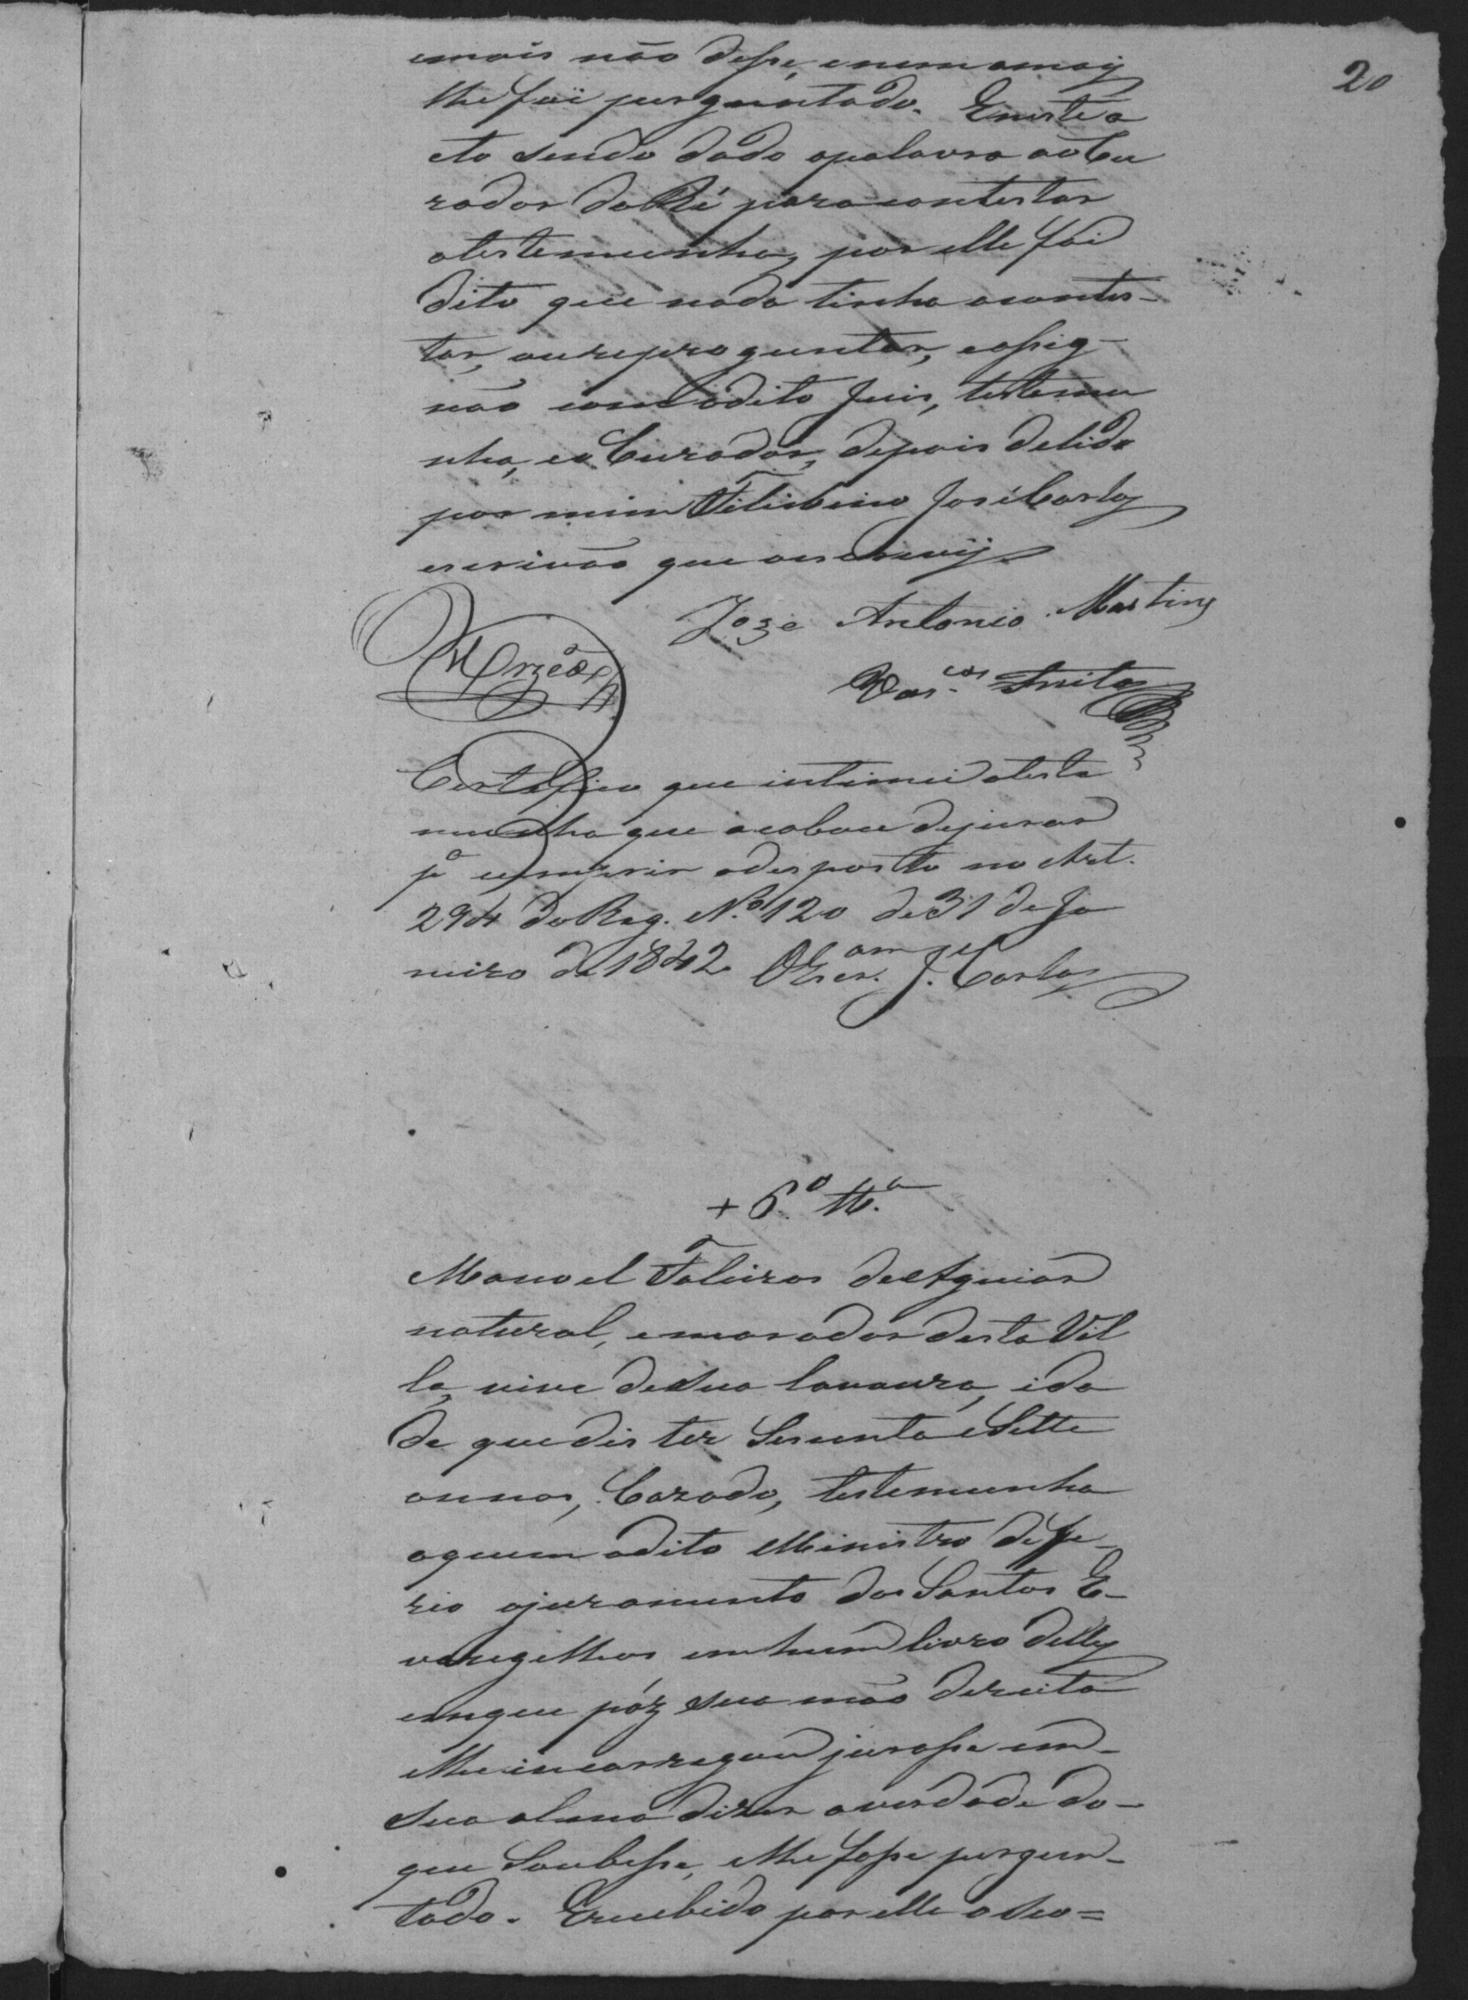 20
emais não disse, enem amais
lhe foi perguntado. Eneste a
cto sendo dado apalavra aoCu
rador daRé para contestar
atestemunha, por elle foi
dito que nada tinha acontes-
tar, oureproguntar, easig-
não com odito Juis, testemu
nha, eo Curador, depois delido
por mim Filisbino José Carlos
escrivão que oescrevij
Joze Antonio Martins
Vas.cos Freitas
Certifico que intimei atesta
munha que acabou dejurar
pa cumprir odisposto no Art.
294 do Reg. No 120 de 31 de Ja
neiro de 1842. OEscram J. Carlos
+ 6.a tt.a
Manoel Taleiros deAguiar
natural, emorador desta Vil
la, vive desua lavoura, ida
de que dis ter Sesenta eSette
annos, Cazado, testemunha
aquem odito Ministro defe-
rio ojuramento dos Santos E-
vangelhos emhum livro delles
emque pôz sua mão dereita
elhe incarregou jurasse em-
sua alma dizer averdade do-
que Soubesse, elhe fosse pergun-
tado. Erecebido por elle oseo=